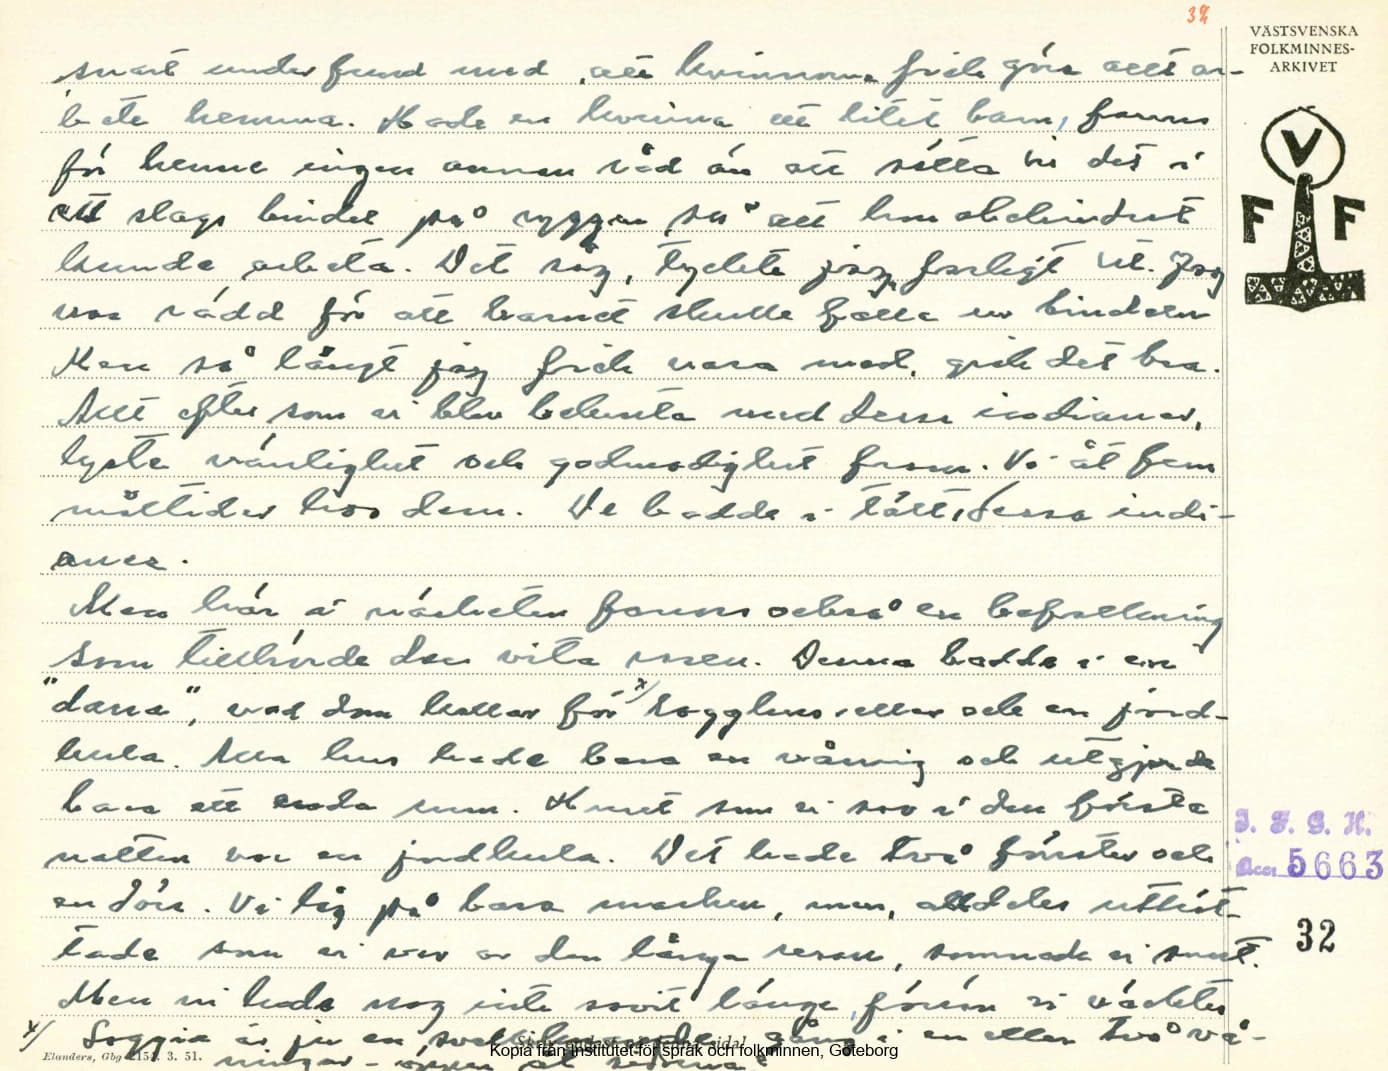 32
VÄSTSVENSKA
FOLKMINNES-
ARKIVET
V
F F
snart underfund med, att kvinnorna fick göra allt ar-
bete hemma. Hade en kvinna ett litet barn, fanns
för henne ingen annan råd än att sätta det i
ett slags bindel på ryggen så att hon obehindrat
kunde arbeta. Det såg, tyckte jag, farligt ut. Jag
var rädd för att barnet skulle falla ur bindeln
Men så långt jag fick vara med, gick det bra.
Allt efter som vi blev bekanta med dessa indianer,
lyste vänlighet och godmodighet fram. Vi åt fem
måltider hos dem. De bodde i tält, dessa indi-
aner.
Men här i närheten fanns också en befolkning
som tillhörde den vita rasen. Denna bodde i en
" , vad dom kallar för x/ och en jord-
kula. Alla hus hade bara en våning och utgjorde
bara ett enda rum. Huset som vi sov i den första
natten var en jordkula. Det hade två fönster och
en dörr. Vi låg på bara marken, men, alldeles uttröt-
tade som vi var av den långa resan, somnade vi snart.
Men vi hade nog inte sovit länge, förrän vi väcktes
x/ Loggia är ju en gång i en eller två vå-
ningar - öppen åt sidorna
I. F. G. H.
Acc. 5663
32
Elanders, Gbg 3. 51.
Kopia från institutet för språk och folkminnen, Göteborg